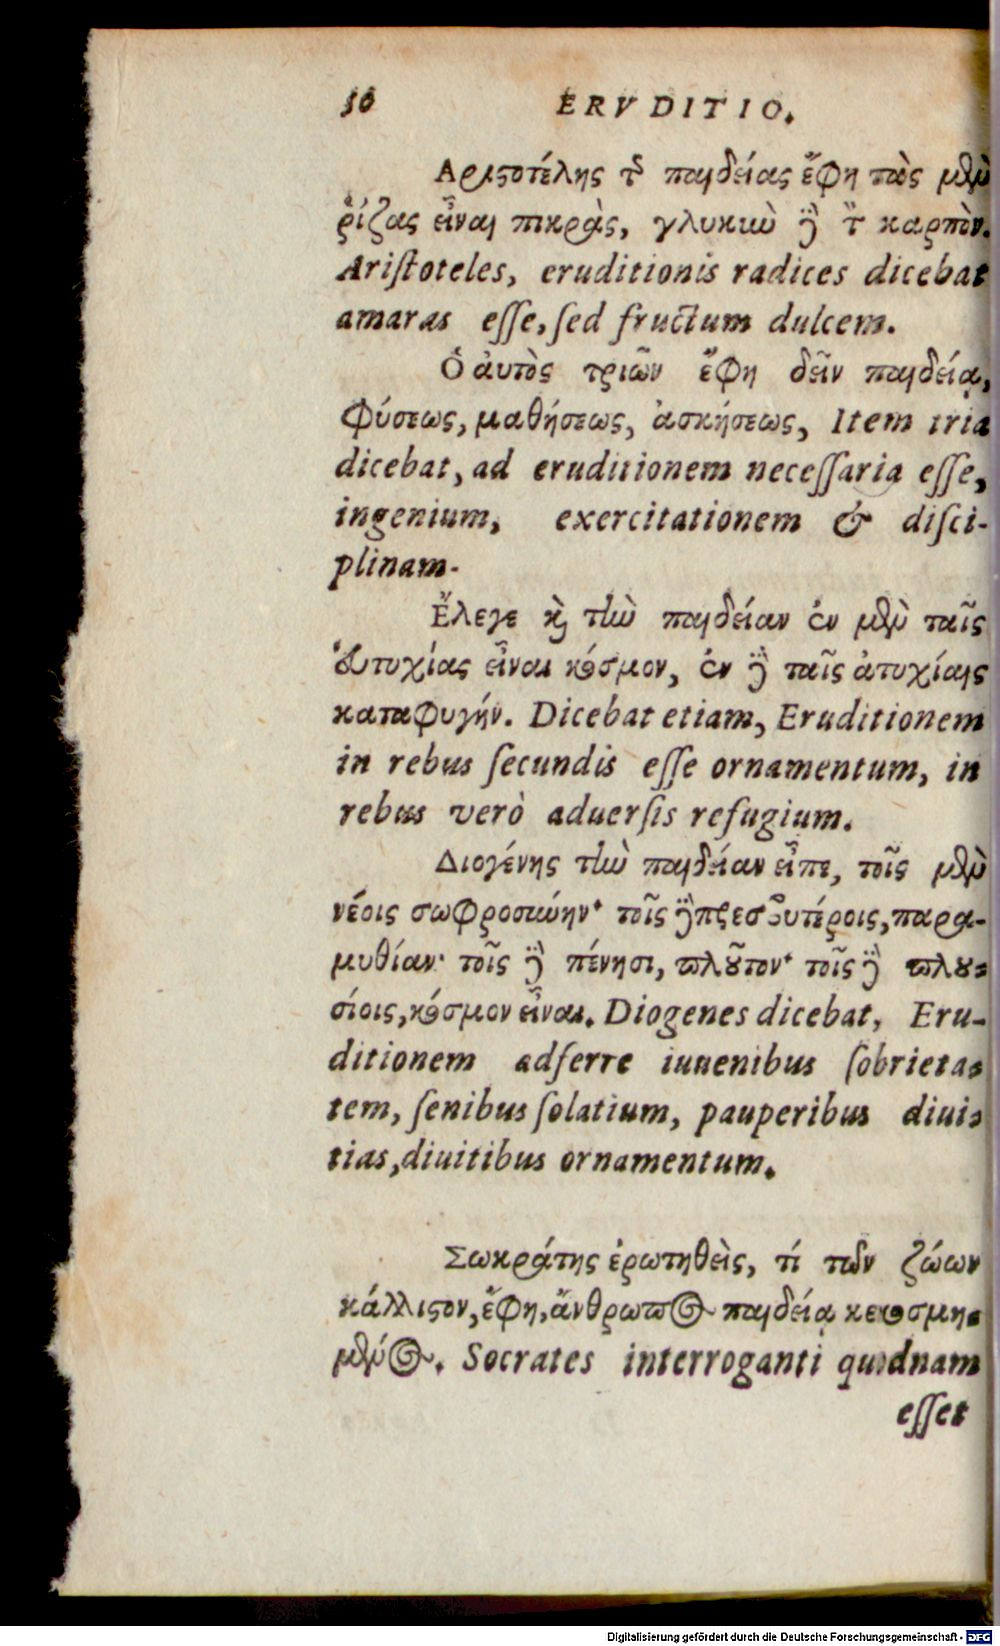 56 ERVDITIO.
Αριστοτέλης τῆς παιδείας ἔφη τὰς μὲν
ῥίζας εἶναι πικρὰς, γλυκὺν δὲ τὸν καρπὸν.
Ariſtoteles, eruditionis radices dicebat
amaras eſſe, ſed fructum dulcem.
Ὁ αὐτὸς τριῶν ἔφη δεῖν παιδείᾳ,
φύσεως, μαθήσεως, ἀσκήσεως, Item tria
dicebat, ad eruditionem neceſſaria eſſe,
ingenium, exercitationem & diſci-
plinam.
Ἔλεγε καὶ τὴν παιδείαν ἐν μὲν ταῖς
εὐτυχίας εἶναι κόσμον, ἐν δὲ ταῖς ἀτυχίαις
καταφυγήν. Dicebat etiam, Eruditionem
in rebus ſecundis eſſe ornamentum, in
rebus verò aduerſis refugium.
Διογένης τὴν παιδείαν εἶπε, τοῖς μὲν
νέοις σωφροσύνην· τοῖς δὲ πρεσβυτέροις, παρα-
μυθίαν· τοῖς δὲ πένησι, πλοῦτον· τοῖς δὲ πλου-
σίοις, κόσμον εἶναι. Diogenes dicebat, Eru-
ditionem adferre iuuenibus ſobrieta-
tem, ſenibus ſolatium, pauperibus diui-
tias, diuitibus ornamentum.
Σωκράτης ἐρωτηθεὶς, τί τῶν ζώων
κάλλιστον, ἔφη, ἄνθρωπος παιδείᾳ κεκοσμη-
μένος. Socrates interroganti quidnam
eſſet
Digitalisierung gefördert durch die Deutsche Forschungsgemeinschaft - DFG